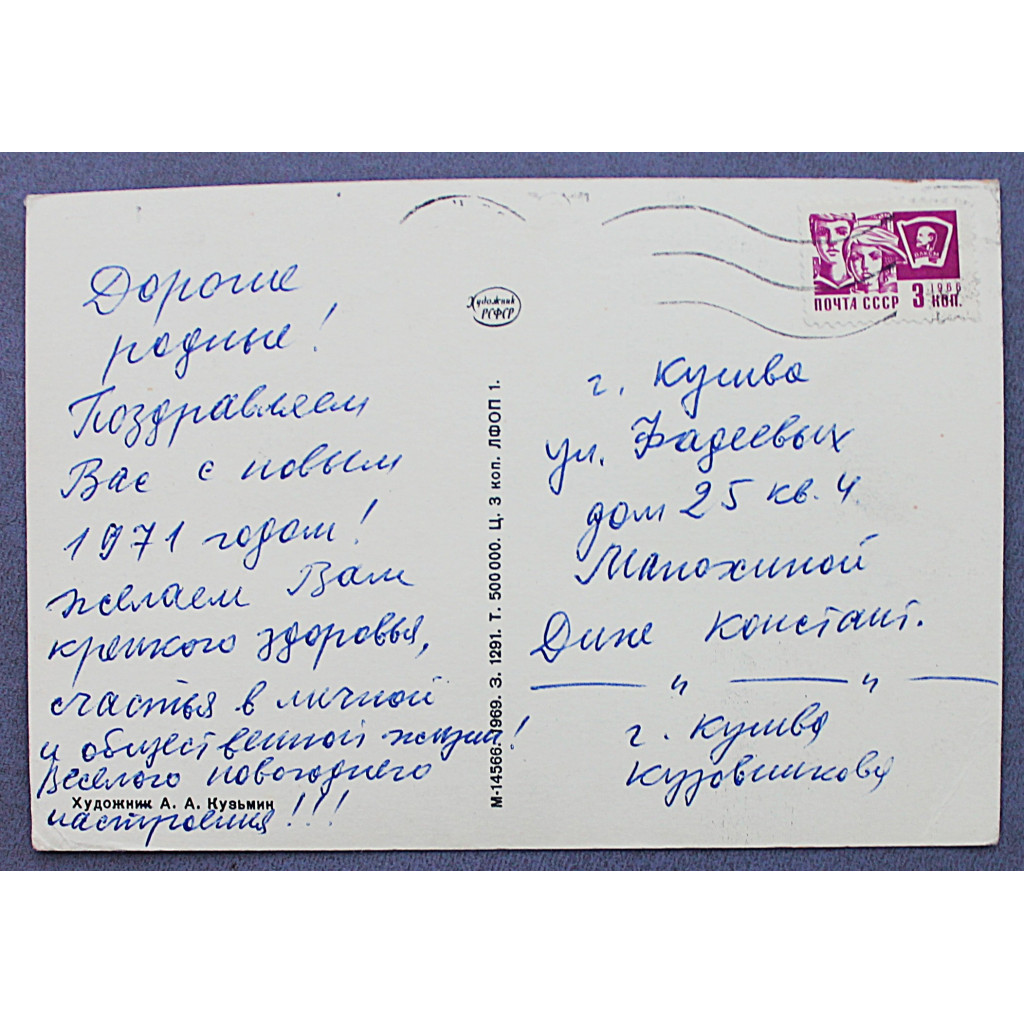 Дорогие
родные!
Поздравляем
Вас с новым
1971 годом!
желаем Вам
крепкого здоровья,
счастья в личной
и общественной жизни!
Веселого новогоднего
настроения!!!
Художник А. А. Кузьмин
Художник
РСФСР
М-14566. 1969. З. 1291. Т. 500 000. Ц. 3 коп. ЛФОП 1.
1966
ПОЧТА СССР 3 КОП.
г. Кушва
ул. Фадеевых
дом 25 кв. 4
Манохиной
Дине Констант.
— " — " —
г. Кушва
Кузовникова